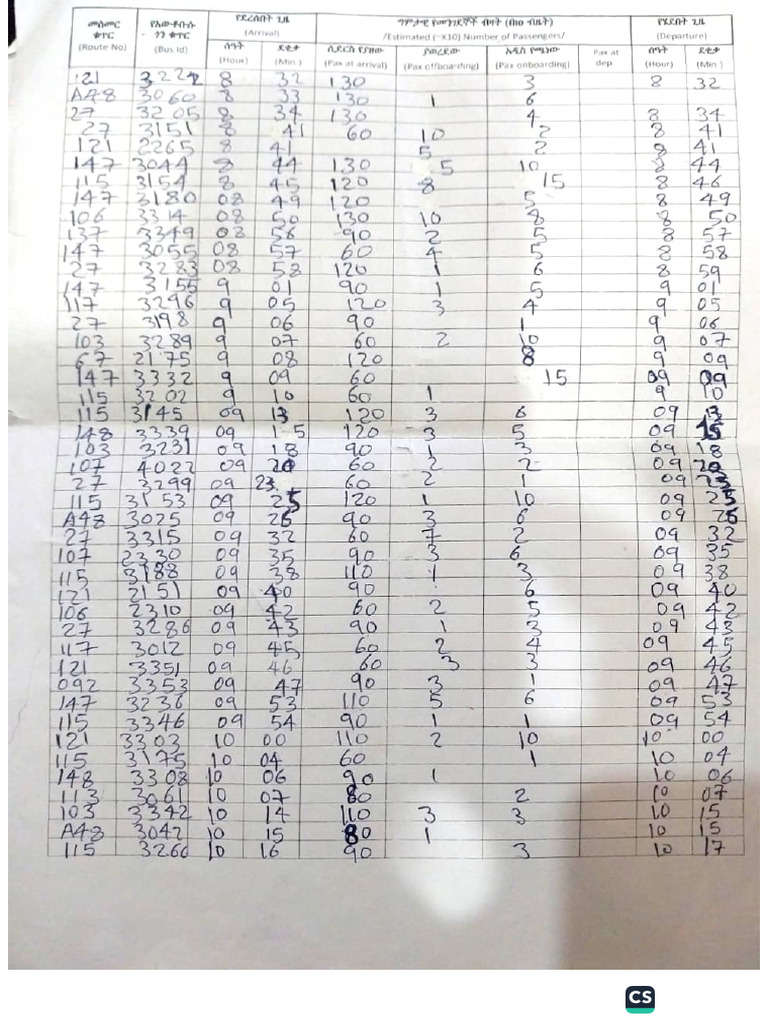 መስመር ቁጥር (Route No) የአውቶቡሱ ጎን ቁጥር (Bus Id) የደረሰበት ጊዜ (Arrival) ግምታዊ የመንገደኞች ብዛት (በ፲፡ ብዜት) /Estimated (~X10) Number of Passengers/ የሄደበት ጊዜ (Departure)
ሰዓት (Hour) ደቂቃ (Min.) ሲደርስ የያዘው (Pax at arrival) ያወረደው (Pax offboarding) አዲስ የጫነው (Pax onboarding) Pax at dep. ሰዓት (Hour) ደቂቃ (Min.)
121 3222 8 32 130 3 8 32
A48 3060 8 33 130 1 6
27 3205 8 34 130 4 8 34
27 3151 8 41 60 10 2 8 41
121 2265 8 41 5 2 8 41
147 3044 8 44 130 5 10 8 44
115 3154 8 45 120 8 15 8 46
147 3180 08 49 120 5 8 49
106 3314 08 50 130 10 8 8 50
137 3349 08 56 90 2 5 8 57
147 3055 08 57 60 4 5 8 58
27 3283 08 58 120 1 6 8 59
147 3155 9 01 90 1 5 9 01
117 3296 9 05 120 3 4 9 05
27 3198 9 06 90 1 9 06
103 3289 9 07 60 2 10 9 07
67 2175 9 08 120 8 9 09
147 3332 9 09 60 15 09 09
115 3202 9 10 60 1 9 10
115 3145 09 13 120 3 6 09 13
148 3339 09 15 120 3 5 09 15
103 3231 09 18 90 1 3 09 18
107 4022 09 20 60 2 2 09 20
27 3299 09 23 60 2 1 09 23
115 3153 09 25 120 1 10 09 25
A48 3025 09 26 90 3 6 09 26
27 3315 09 32 60 7 2 09 32
107 2330 09 35 90 3 6 09 35
115 3188 09 38 110 1 3 09 38
121 2151 09 40 90 6 09 40
106 2310 09 42 60 2 5 09 42
27 3286 09 43 90 1 3 09 43
117 3012 09 45 60 2 4 09 45
121 3351 09 46 60 3 3 09 46
092 3353 09 47 90 3 1 09 47
147 3236 09 53 110 5 6 09 53
115 3346 09 54 90 1 1 09 54
121 3303 10 00 110 2 10 10 00
115 3175 10 04 60 1 10 04
148 3308 10 06 90 1 10 06
113 3061 10 07 80 2 10 07
103 3342 10 14 110 3 3 10 15
A48 3042 10 15 80 1 10 15
115 3266 10 16 90 3 10 17
CS